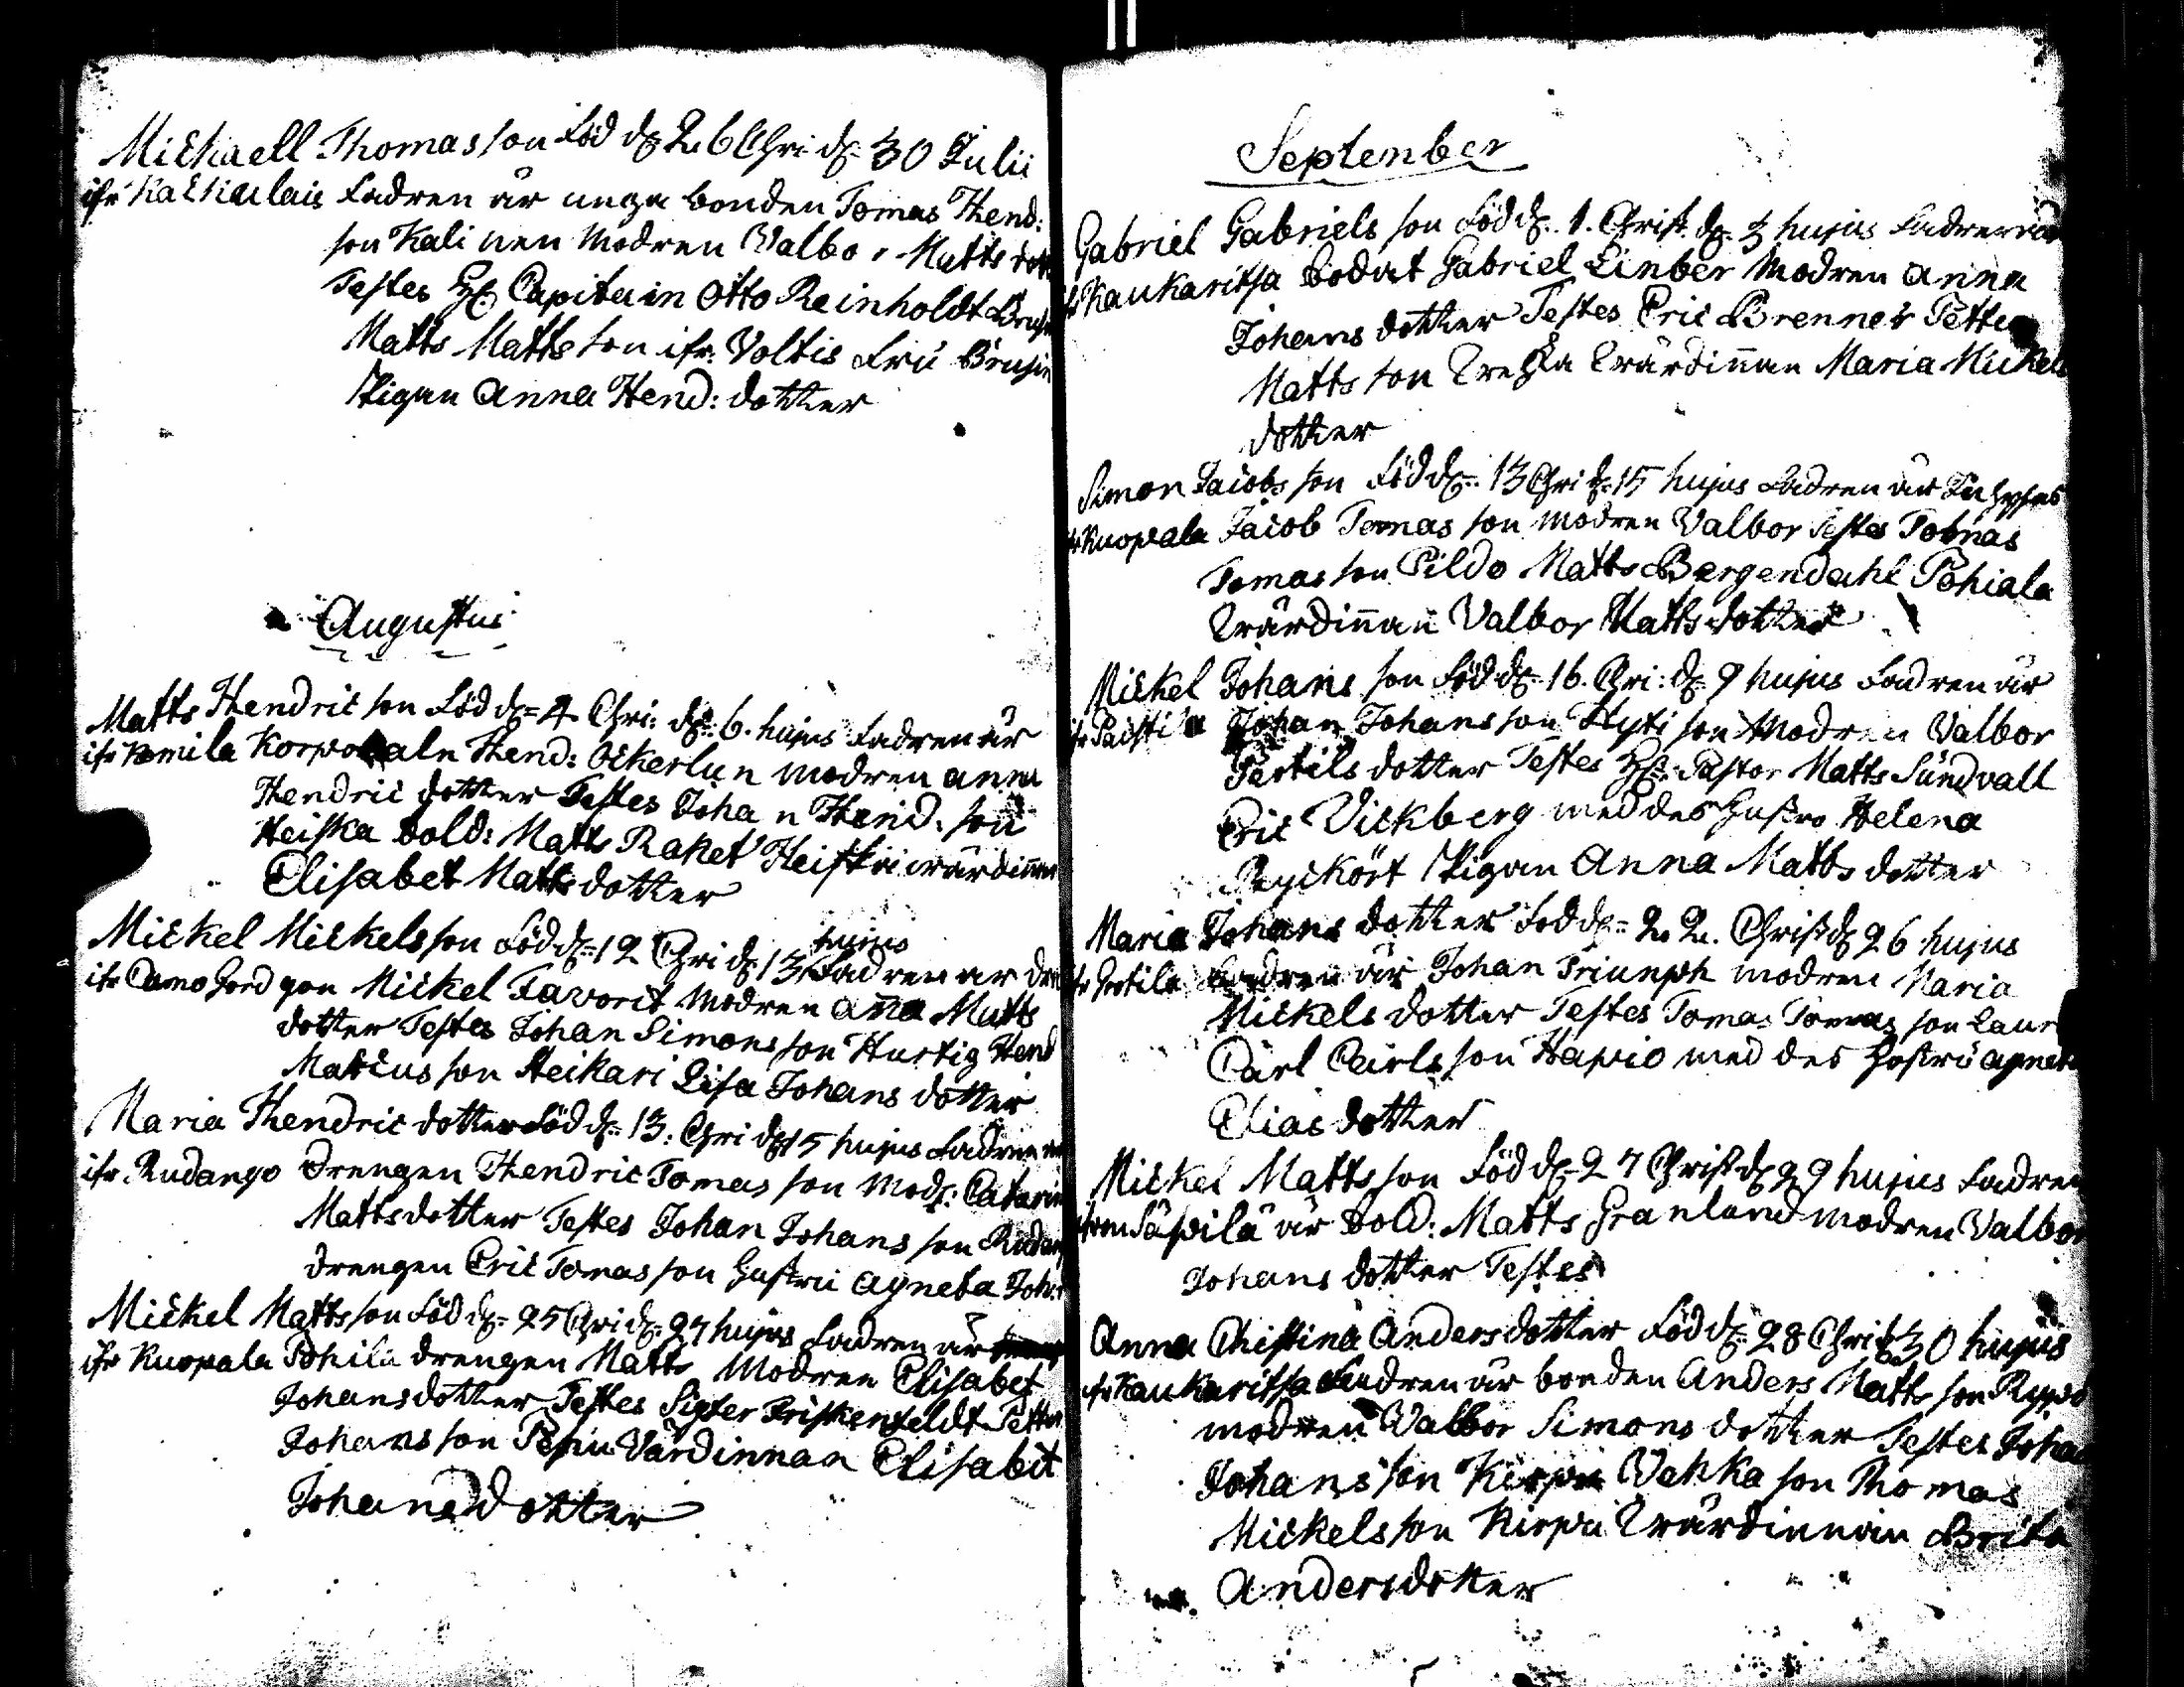 Michaell Thomas son Föd d. 26 Chri d. 30 Julii
ifr Kackulais Fadren är unga bonden Tomas Hend:
son Kali nen Modren Valbor Matts dott
Testes H. Capitain Otto Reinholdt Brusin
Matts Matts son ifr. Voltis Fru Brusin
Pigan Anna Hend: dotter
Augustus
Matts Hendric son Föd d. 4 Chri: d. 6. hujus Fadren är
ifr Komila Korporaln Hend: Ockerlun modren anna
Hendric dotter Testes Johan Hend: son
Heiska Sold: Matts Raket Heiskü wärdinnan
Elisabet Matts dotter
Mickel Mickels son Föd d. 12 Chri d. 13 hujus Fadren är dra
ifr Damo Gord gon Mickel Favorit Modren ana Matts
dotter Testes Johan Simons son Hurtig Hend
Matius son Heikari Lisa Johans dotter
Maria Hendric dotter Föd d. 13: Chri d. 15 hujus Fadren är
ifr Rudango Drengen Hendric Tomas son Modr: Catarin
Matts dotter Testes Johan Johans son Rudang
Drengen Eric Tomas son Hustru agneta Joh:
Mickel Matts son Föd d. 25 Chri d. 27 hujus Fadren är
ifr Kuopala Pohila drengen Matts Modren Elisabet
Johans dotter Testes Friskenfeldt Petter
Johans son Värdinnan Elisabet
Johans dotter
September
Gabriel Gabriels son Föd d. 1. Christ. d. 3 hujus Fadren är
ifr Kaukaritsa Sodat Gabriel Linber Modren anna
Johans dotter Testes Eric Brenner Petter
Matts son Wärdinnan Maria Mickels
dotter
Simon Jacobs son Föd d. 13 Chri d. 15 hujus Fadren är
ifr Kuopala Jacob Tomas son Modren Valbor Testes Tomas
Tomas son Pildo Matts Bergendahl Pohiala
Wärdinnan Valbor Matts dotter
Mickel Johans son Föd d. 16. Chri: d. 9 hujus Fadren är
ifr Paisti la Johan Johans son Hyti son Modren Valbor
Pertils dotter Testes H. Pastor Matts Sundvall
Eric Vickberg med des Hustro Helena
Pigan Anna Matts dotter
Maria Johans dotter Föd d. 22. Christ d. 26 hujus
ifr Pertila Fadren är Johan Triumph modren Maria
Mickels dotter Testes Tomas Tomas son Laur
Carl Carls son Hapio med des Hustru agneta
Elias dotter
Mickel Matts son Föd d. 27 Christ d. 29 hujus Fadren
från Säpilä är Sold: Matts Granlund modren Valbor
Johans dotter Testes
Anna Chistina Anders dotter Föd d. 28 Chri d. 30 hujus
ifr Kaukaritsa Fadren är bonden Anders Matts son
modren Valbor Simons dotter Testes Johan
Johans son Kirpu Wehka son Thomas
Mickels son Kirpu Wärdinnan Brita
Anders dotter